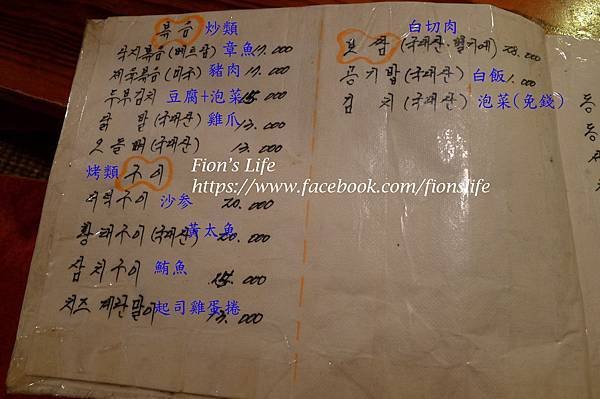 볶음 炒類
낙지볶음 (베트남) 章魚 17.000
제육볶음 (미국) 豬肉 17.000
두부김치 豆腐+泡菜 15.000
닭 발 (국내산) 雞爪 13.000
오돌뼈 (국내산) 13.000
烤類 구이
더덕구이 沙參 20.000
황태구이 (국내산) 黃太魚 20.000
삼치구이 鮪魚 15.000
치즈 계란말이 起司雞蛋捲 13.000
白切肉
보쌈 (국내산·벨기에) 28.000
공기밥 (국내산) 白飯 1.000
김 치 (국내산) 泡菜(免錢)
동
동
Fion's Life
https://www.facebook.com/fionslife